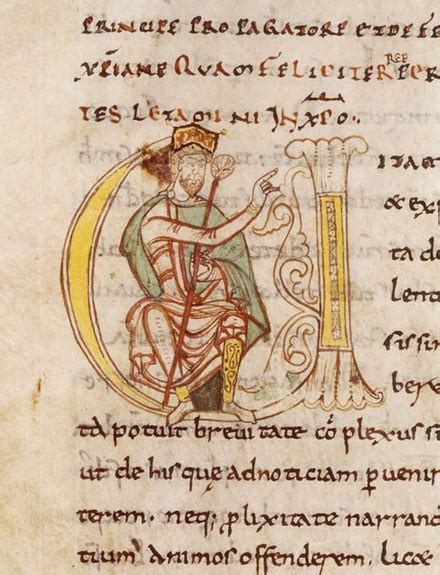 PRINCIPE PROPAGATORE ET DEFE
XPIANE QUAM FELICITER REE PER
TES LETAMINI IN XPO.
ITA
& exp
ta do
lenti
sissim
berv
ta potuit brevitate cō plexus s
ut de his quę ad noticiam ꝑvenir
terem. neq; ꝓlixitate narrand
tium Animos offenderem. licæ